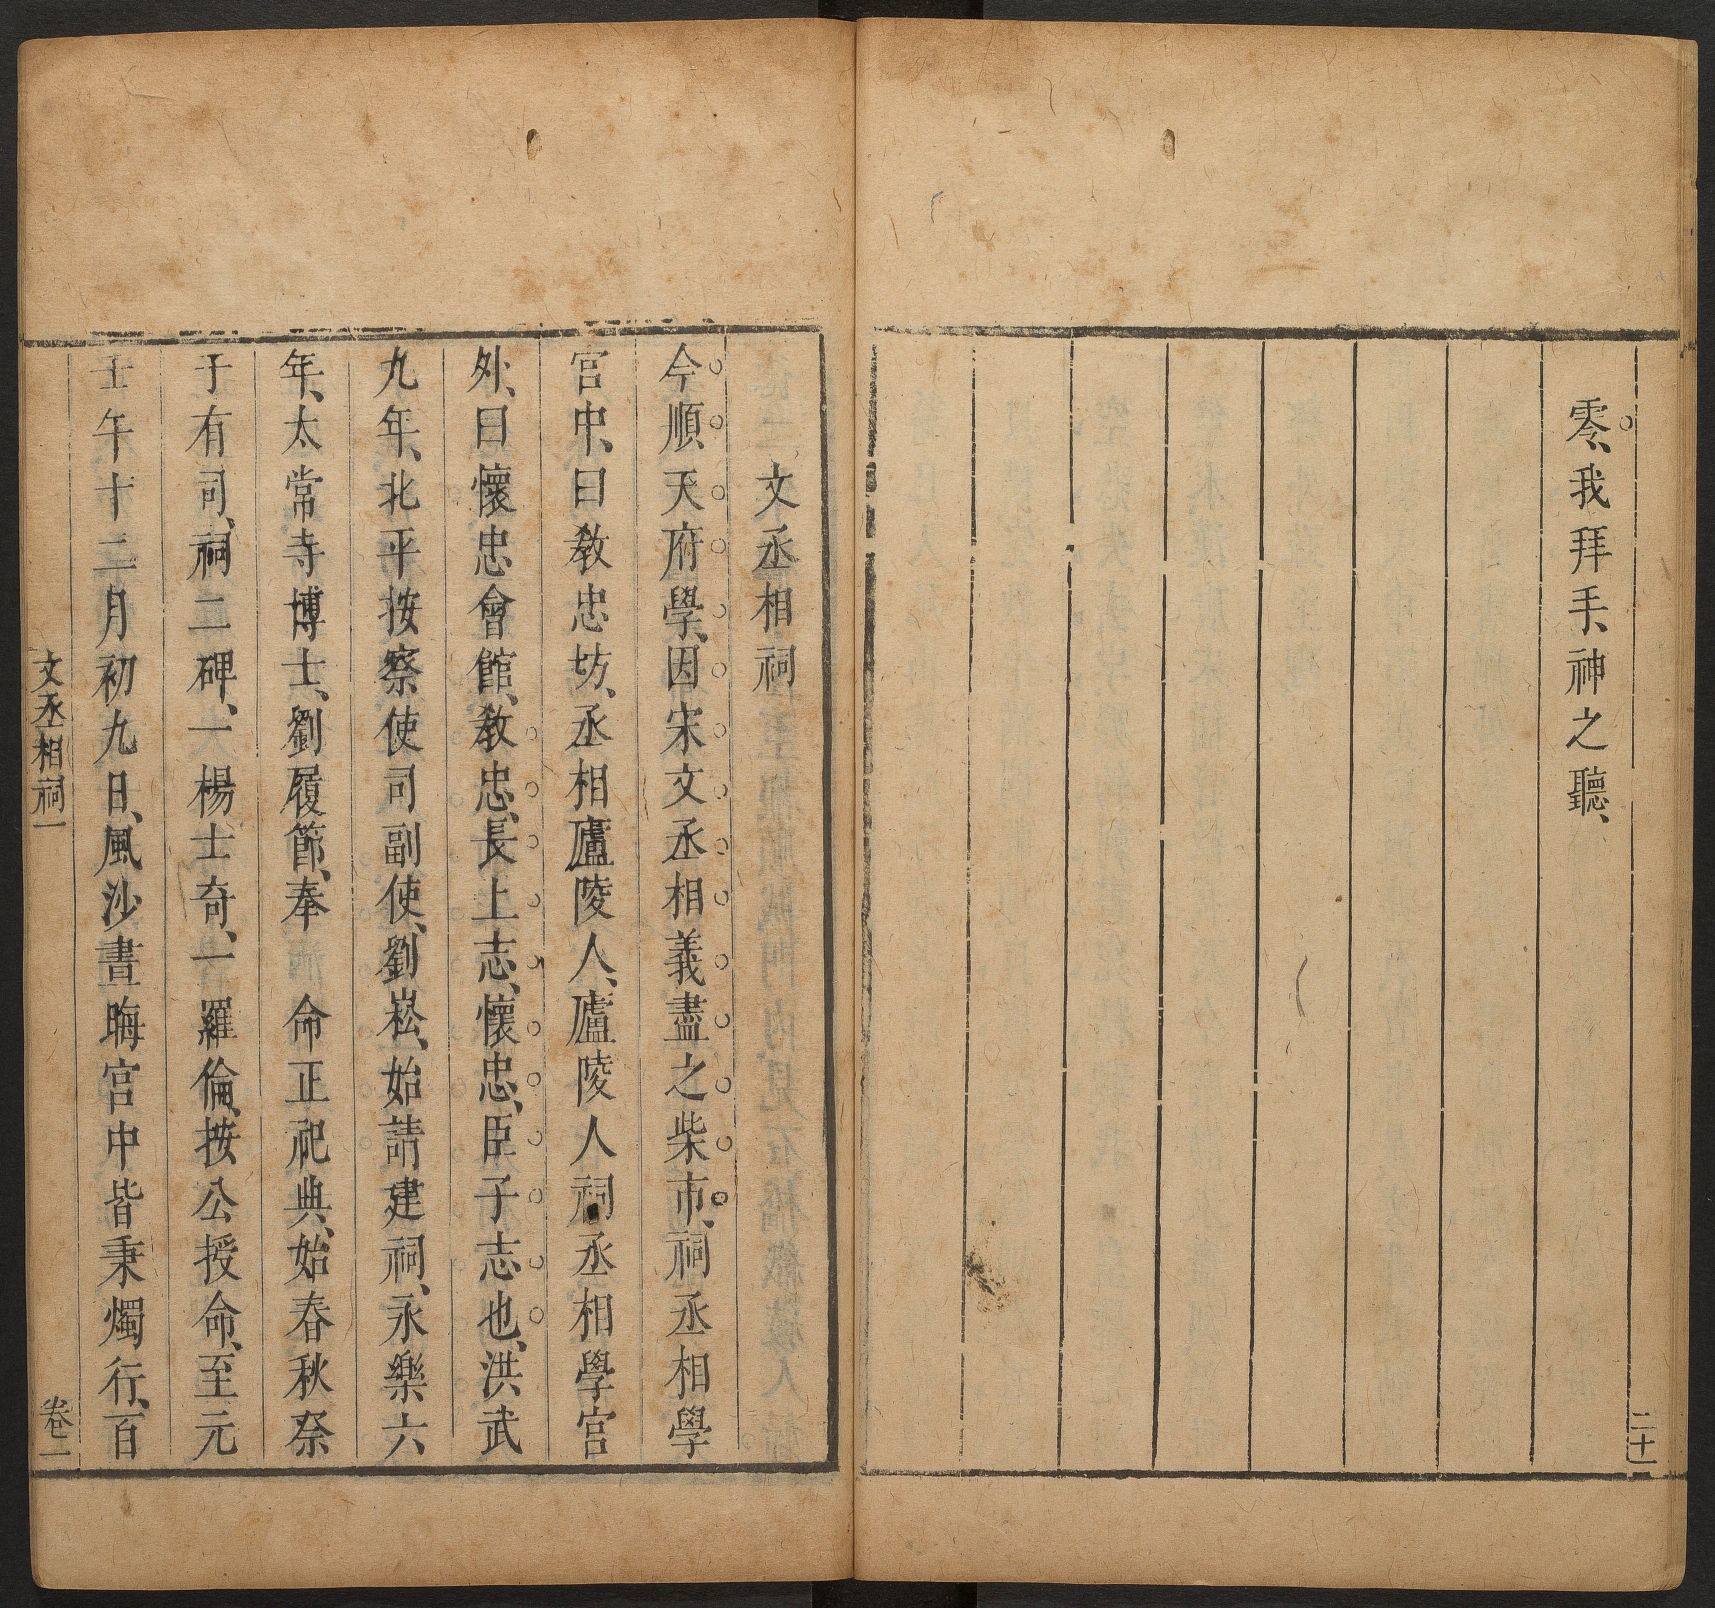 零、我拜手、神之聽、
二十一
文丞相祠
今順天府學、因宋文丞相義盡之柴市、祠丞相學
宮中、曰敎忠坊、丞相廬陵人、廬陵人祠丞相學宮
外、曰懷忠會館、敎忠、長上志、懷忠、臣子志也、洪武
九年、北平按察使司副使、劉崧、始請建祠、永樂六
年、太常寺博士、劉履節、奉　命正祀典、始春秋祭
于有司、祠二碑、一楊士奇、一羅倫、按公授命、至元
壬午十二月初九日、風沙晝晦宮中皆秉燭行、百
文丞相祠一
卷一